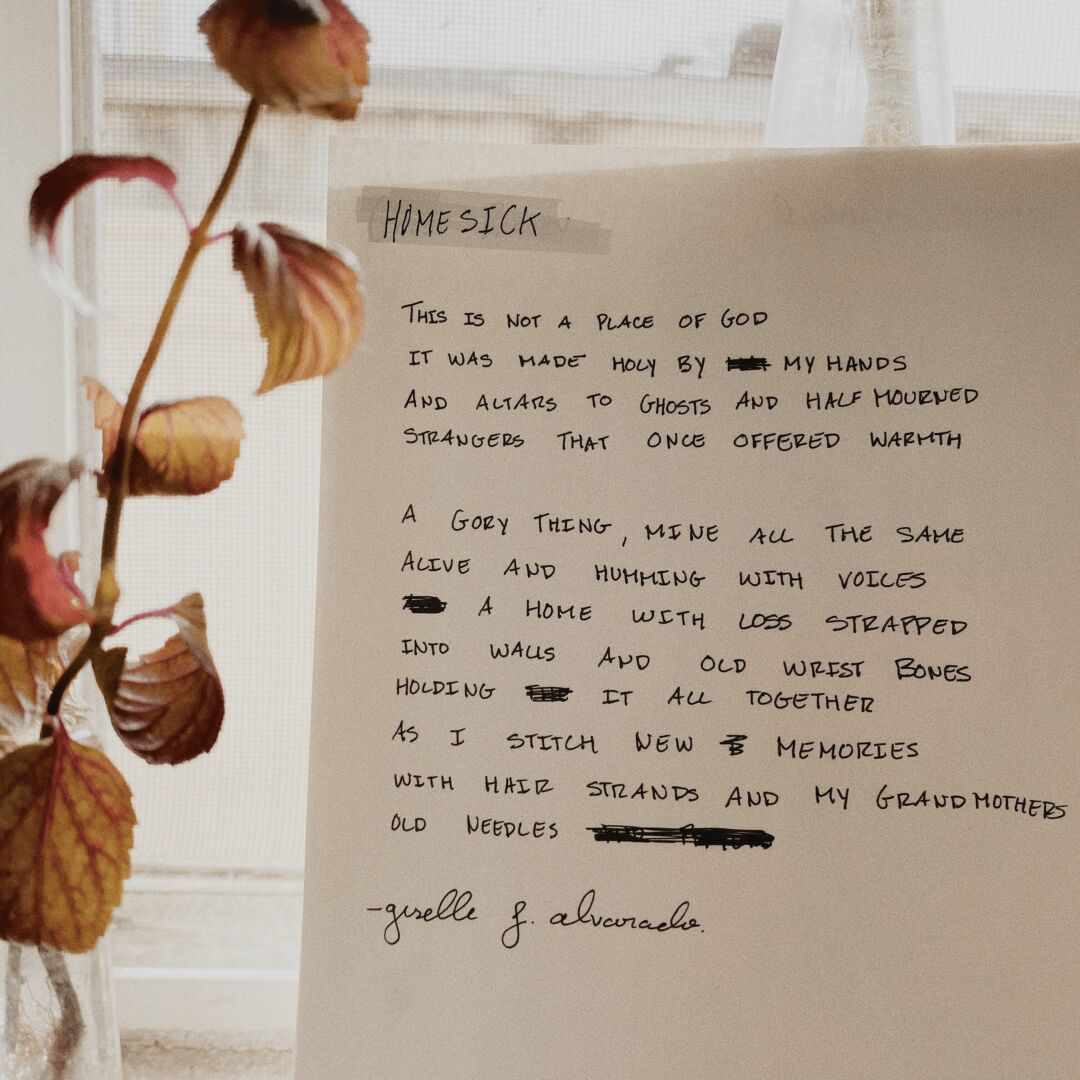 HOMESICK
THIS IS NOT A PLACE OF GOD
IT WAS MADE HOLY BY MY HANDS
AND ALTARS TO GHOSTS AND HALF MOURNED
STRANGERS THAT ONCE OFFERED WARMTH
A GORY THING, MINE ALL THE SAME
ALIVE AND HUMMING WITH VOICES
A HOME WITH LOSS STRAPPED
INTO WALLS AND OLD WRIST BONES
HOLDING IT ALL TOGETHER
AS I STITCH NEW MEMORIES
WITH HAIR STRANDS AND MY GRANDMOTHERS
OLD NEEDLES
-giselle f. alvarado.